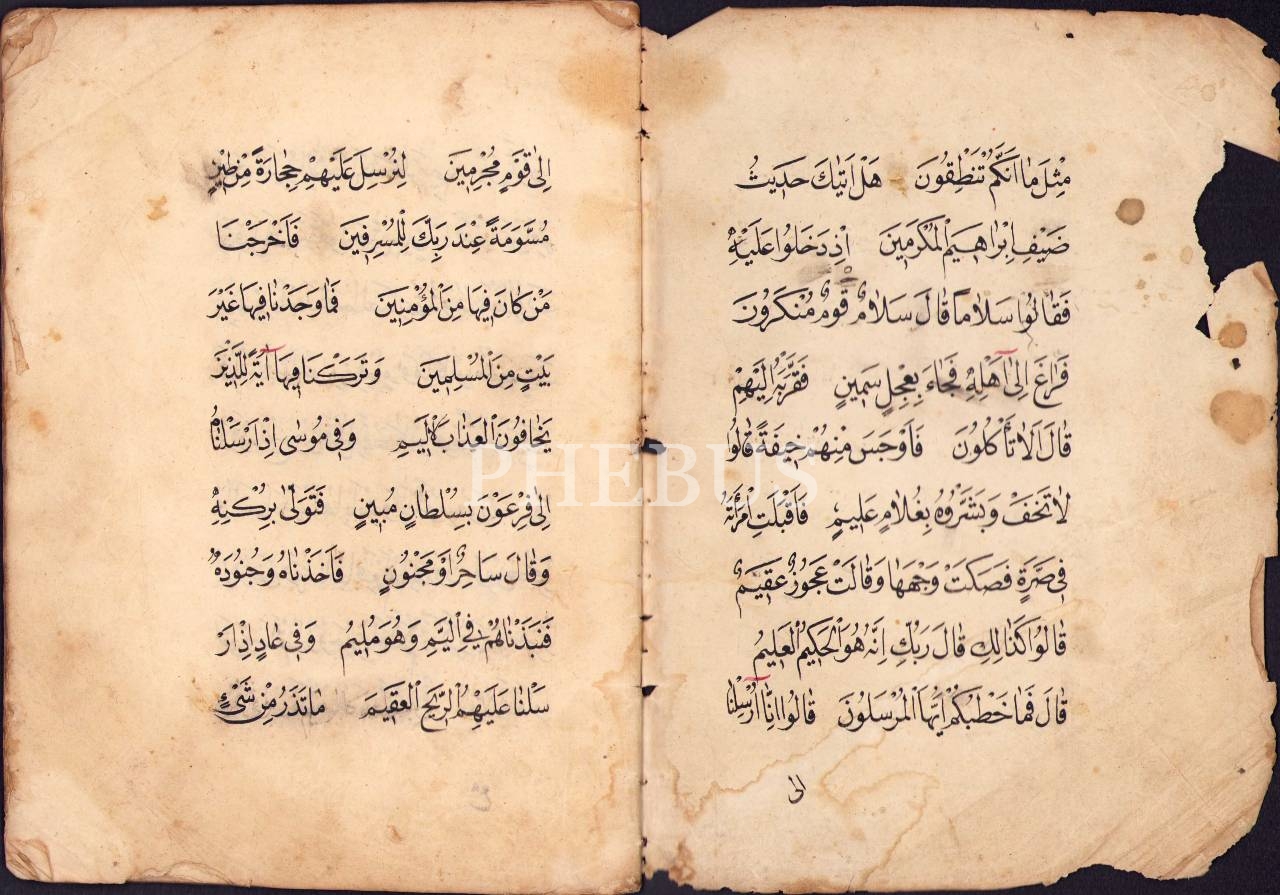 مِثْلَ مَا اَنَّكُمْ تَنْطِقُونَ هَلْ اَتٰيكَ حَدِيثُ
ضَيْفِ اِبْرٰاهِيمَ الْمُكْرَمِينَ اِذْ دَخَلُوا عَلَيْهِ
فَقَالُوا سَلَامًا قَالَ سَلَامٌ قَوْمٌ مُنْكَرُونَ
فَرَاغَ اِلٰى اَهْلِهِ فَجَاءَ بِعِجْلٍ سَمِينٍ فَقَرَّبَهُ اِلَيْهِمْ
قَالَ اَلَا تَأْكُلُونَ فَاَوْجَسَ مِنْهُمْ خِيفَةً قَالُوا
لَا تَخَفْ وَبَشَّرُوهُ بِغُلَامٍ عَلِيمٍ فَاَقْبَلَتِ امْرَأَتُهُ
فِى صَرَّةٍ فَصَكَّتْ وَجْهَهَا وَقَالَتْ عَجُوزٌ عَقِيمٌ
قَالُوا كَذٰلِكِ قَالَ رَبُّكِ اِنَّهُ هُوَ الْحَكِيمُ الْعَلِيمُ
قَالَ فَمَا خَطْبُكُمْ اَيُّهَا الْمُرْسَلُونَ قَالُوا اِنَّا اُرْسِلْنَا
الى
اِلٰى قَوْمٍ مُجْرِمِينَ لِنُرْسِلَ عَلَيْهِمْ حِجَارَةً مِنْ طِينٍ
مُسَوَّمَةً عِنْدَ رَبِّكَ لِلْمُسْرِفِينَ فَاَخْرَجْنَا
مَنْ كَانَ فِيهَا مِنَ الْمُؤْمِنِينَ فَمَا وَجَدْنَا فِيهَا غَيْرَ
بَيْتٍ مِنَ الْمُسْلِمِينَ وَتَرَكْنَا فِيهَا اٰيَةً لِلَّذِينَ
يَخَافُونَ الْعَذَابَ الْاَلِيمَ وَفِى مُوسٰى اِذْ اَرْسَلْنَاهُ
اِلٰى فِرْعَوْنَ بِسُلْطَانٍ مُبِينٍ فَتَوَلّٰى بِرُكْنِهِ
وَقَالَ سَاحِرٌ اَوْ مَجْنُونٌ فَاَخَذْنَاهُ وَجُنُودَهُ
فَنَبَذْنَاهُمْ فِى الْيَمِّ وَهُوَ مُلِيمٌ وَفِى عَادٍ اِذْ اَرْ
سَلْنَا عَلَيْهِمُ الرِّيحَ الْعَقِيمَ مَا تَذَرُ مِنْ شَىْءٍ
PHEBUS